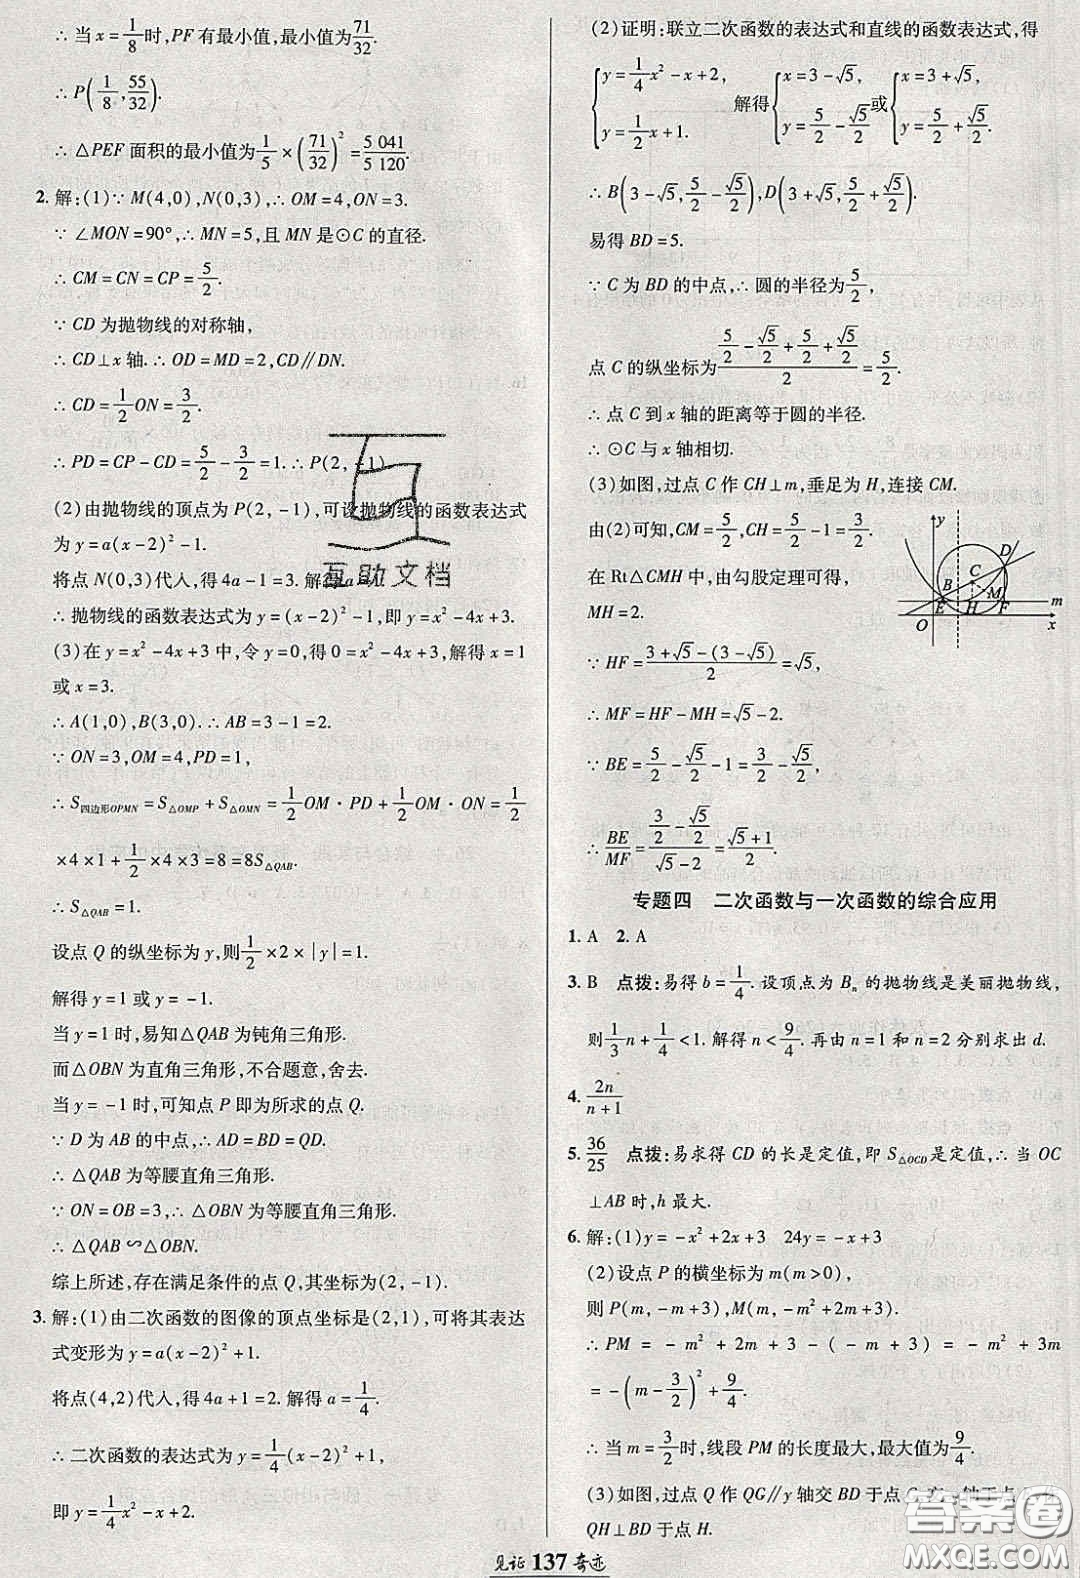 ∴ 当 x = 1/8 时, PF 有最小值, 最小值为 71/32.
∴ P(1/8, 55/32).
∴ △PEF 面积的最小值为 1/5 × (71/32)² = 5 041/5 120.
2. 解:(1)∵ M(4,0), N(0,3), ∴ OM = 4, ON = 3.
∵ ∠MON = 90°, ∴ MN = 5, 且 MN 是⊙C 的直径.
∴ CM = CN = CP = 5/2.
∵ CD 为抛物线的对称轴,
∴ CD⊥x 轴. ∴ OD = MD = 2, CD∥DN.
∴ CD = 1/2 ON = 3/2.
∴ PD = CP − CD = 5/2 − 3/2 = 1. ∴ P(2, −1)
(2)由抛物线的顶点为 P(2, −1), 可设抛物线的函数表达式
为 y = a(x − 2)² − 1.
将点 N(0,3)代入, 得 4a − 1 = 3. 解得 a = 1.
∴ 抛物线的函数表达式为 y = (x − 2)² − 1, 即 y = x² − 4x + 3.
(3)在 y = x² − 4x + 3 中, 令 y = 0, 得 0 = x² − 4x + 3, 解得 x = 1
或 x = 3.
∴ A(1,0), B(3,0). ∴ AB = 3 − 1 = 2.
∵ ON = 3, OM = 4, PD = 1,
∴ S四边形OPMN = S△OMP + S△OMN = 1/2 OM · PD + 1/2 OM · ON = 1/2
×4×1 + 1/2 ×4×3 = 8 = 8S△QAB.
∴ S△QAB = 1.
设点 Q 的纵坐标为 y, 则 1/2 ×2×|y| = 1.
解得 y = 1 或 y = −1.
当 y = 1 时, 易知△QAB 为钝角三角形.
而△OBN 为直角三角形, 不合题意, 舍去.
当 y = −1 时, 可知点 P 即为所求的点 Q.
∵ D 为 AB 的中点, ∴ AD = BD = QD.
∴ △QAB 为等腰直角三角形.
∵ ON = OB = 3, ∴ △OBN 为等腰直角三角形.
∴ △QAB ∽ △OBN.
综上所述, 存在满足条件的点 Q, 其坐标为(2, −1).
3. 解:(1)由二次函数的图像的顶点坐标是(2,1), 可将其表达
式变形为 y = a(x − 2)² + 1.
将点(4,2)代入, 得 4a + 1 = 2. 解得 a = 1/4.
∴ 二次函数的表达式为 y = 1/4 (x − 2)² + 1,
即 y = 1/4 x² − x + 2.
(2)证明:联立二次函数的表达式和直线的函数表达式, 得
{ y = 1/4 x² − x + 2, y = 1/2 x + 1. 解得 { x = 3 − √5, y = 5/2 − √5/2 或 { x = 3 + √5, y = 5/2 + √5/2.
∴ B(3 − √5, 5/2 − √5/2), D(3 + √5, 5/2 + √5/2).
易得 BD = 5.
∵ C 为 BD 的中点, ∴ 圆的半径为 5/2.
点 C 的纵坐标为 (5/2 − √5/2 + 5/2 + √5/2)/2 = 5/2.
∴ 点 C 到 x 轴的距离等于圆的半径.
∴ ⊙C 与 x 轴相切.
(3)如图, 过点 C 作 CH⊥m, 垂足为 H, 连接 CM.
由(2)可知, CM = 5/2, CH = 5/2 − 1 = 3/2.
在 Rt△CMH 中, 由勾股定理可得,
MH = 2.
∵ HF = (3 + √5 − (3 − √5))/2 = √5,
∴ MF = HF − MH = √5 − 2.
∵ BE = 5/2 − √5/2 − 1 = 3/2 − √5/2,
∴ BE/MF = (3/2 − √5/2)/(√5 − 2) = (√5 + 1)/2.
y
D
B
C
M
E
H
F
m
O
x
专题四 二次函数与一次函数的综合应用
1. A 2. A
3. B 点拨:易得 b = 1/4. 设顶点为 Bn 的抛物线是美丽抛物线,
则 1/3 n + 1/4 < 1. 解得 n < 9/4. 再由 n = 1 和 n = 2 分别求出 d.
4. 2n/(n + 1)
5. 36/25 点拨:易求得 CD 的长是定值, 即 S△OCD 是定值, ∴ 当 OC
⊥AB 时, h 最大.
6. 解:(1)y = −x² + 2x + 3 24y = −x + 3
(2)设点 P 的横坐标为 m(m > 0),
则 P(m, −m + 3), M(m, −m² + 2m + 3).
∴ PM = −m² + 2m + 3 − (−m + 3) = −m² + 3m
= −(m − 3/2)² + 9/4.
∴ 当 m = 3/2 时, 线段 PM 的长度最大, 最大值为 9/4.
(3)如图, 过点 Q 作 QG∥y 轴交 BD 于点 G, 
QH⊥BD 于点 H.
互助文档
答案圈
MXQE.COM
见证 137 奇迹